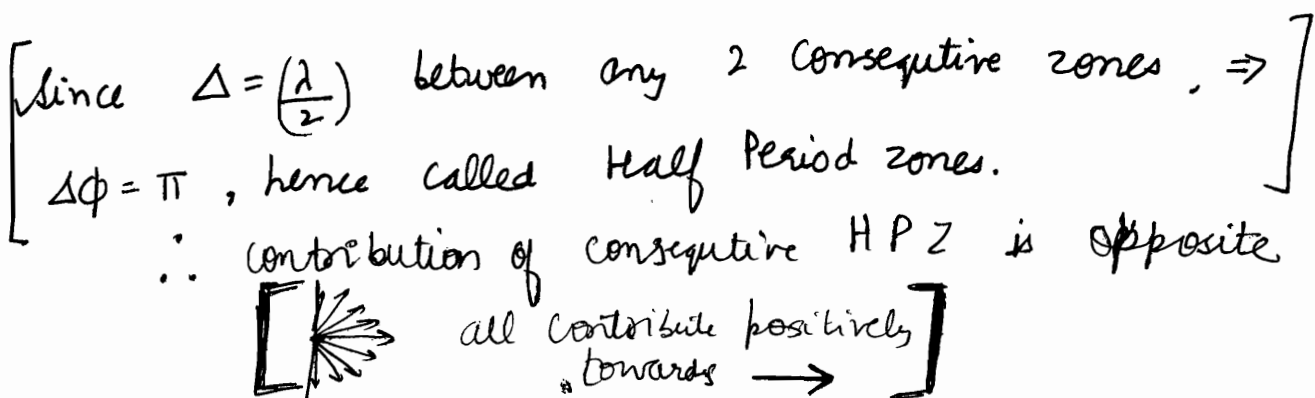 [Since Δ = (λ/2) between any 2 consequtive zones, ⇒
Δϕ = π, hence called Half Period zones.]
∴ contribution of consequtive HPZ is opposite
[all contribute positively
towards →]